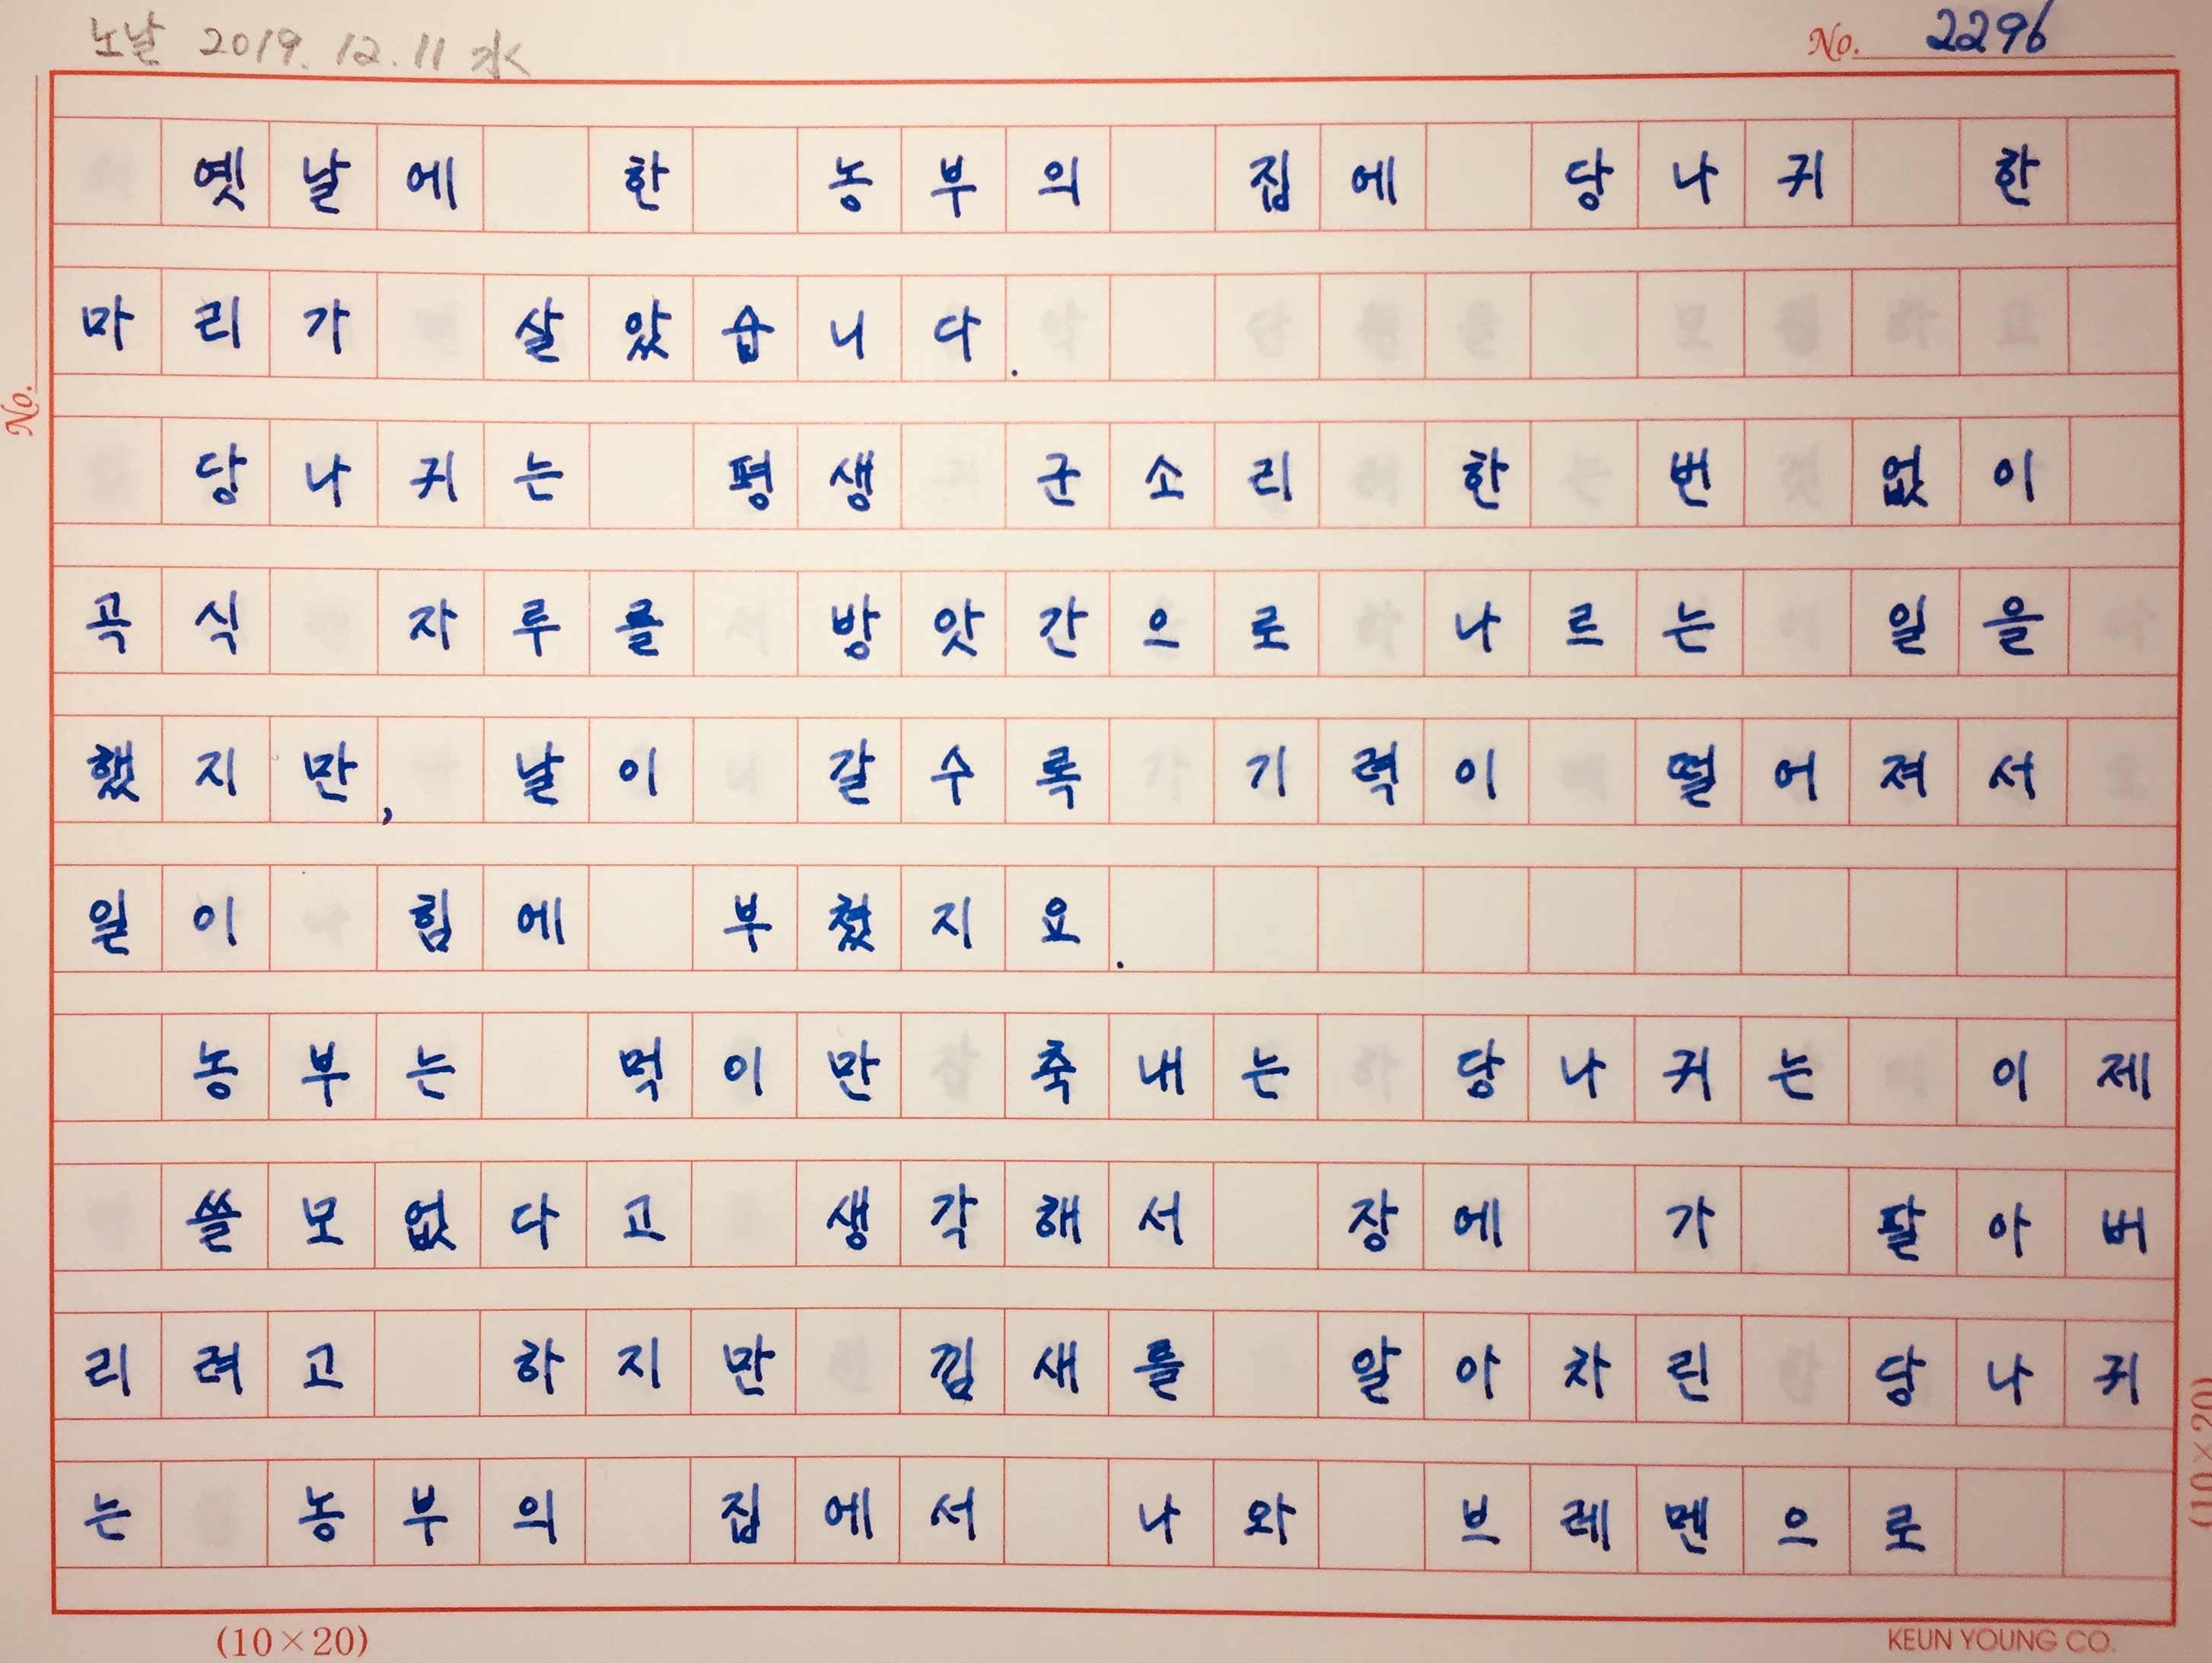 노날 2019. 12. 11 水
No. 2296
옛날에 한 농부의 집에 당나귀 한
마리가 살았습니다.
No.
당나귀는 평생 군소리 한 번 없이
곡식 자루를 방앗간으로 나르는 일을
했지만, 날이 갈수록 기력이 떨어져서
일이 힘에 부쳤지요.
농부는 먹이만 축내는 당나귀는 이제
쓸모없다고 생각해서 장에 가 팔아버
리려고 하지만 낌새를 알아차린 당나귀
는 농부의 집에서 나와 브레멘으로
(10×20)
(10×20)
KEUN YOUNG CO.